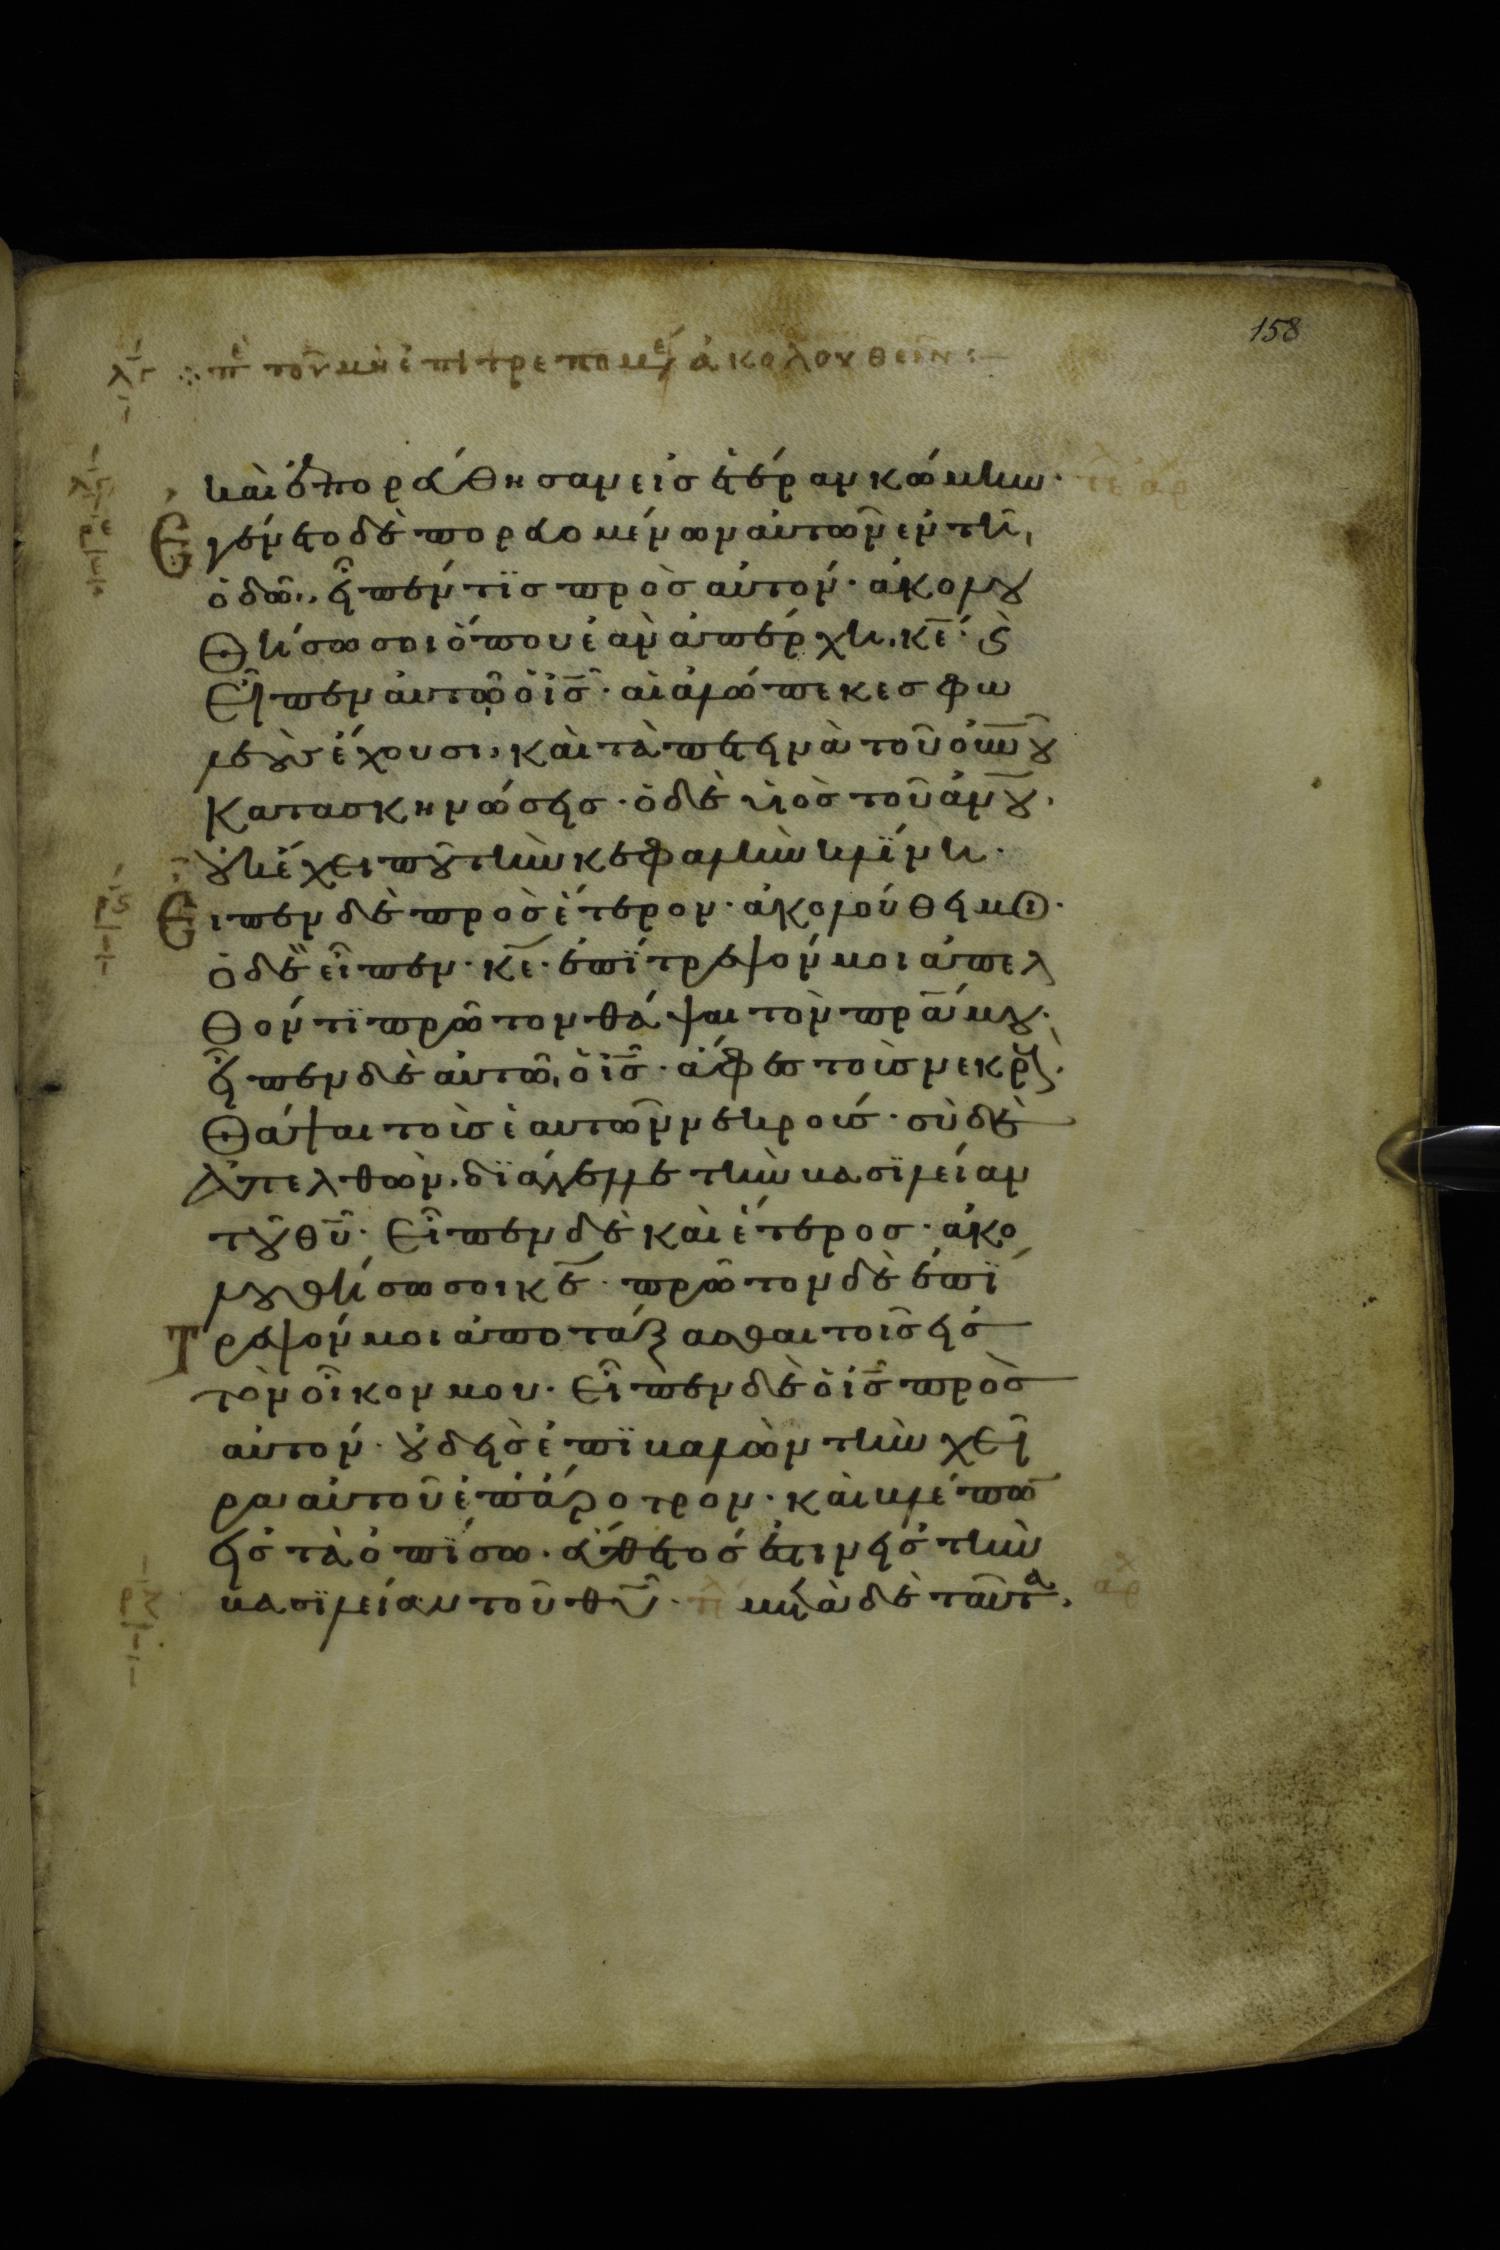 158
λϛ ⁘ πε τοῦ μὴ ἐπιτρεπομέ ἀκολουθεῖν :
καὶ ἐπορεύθησαν εἰσ ἑτέραν κώμην· τε αρ
Ἐγένετο δὲ πορευομένων αὐτῶν ἐν τῆ
ὁδῶ, εἶπέν τϊσ πρὸσ αὐτόν· ἀκολου
θήσω σοι ὅπου ἐὰν ἀπέρχη, κε̅· ϛ
Εἶπεν αὐτῶ ὁ ισ̅· αἱ ἀλώπεκεσ φω
λεοὺσ ἔχουσι, καὶ τὰ πετεινὰ τοῦ οὐνου
κατασκηνώσεισ· ὁ δὲ υἱὸσ τοῦ ἀνου,
οὐκ ἔχει ποῦ τὴν κεφαλὴν κλΐνη·
ρϛ Εἶπεν δὲ πρὸσ ἕτερον· ἀκολούθει μοι·
ὁ δὲ εἶπεν· κε̅· ἐπΐτρεψόν μοι ἀπελ
θόντϊ πρῶτον θάψαι τὸν πρα̅ μου·
εἶπεν δὲ αὐτῶ, ὁ ισ̅· ἄφεσ τοὺσ νεκροὺσ
θάψαι τοὺσ ἑαυτῶν νεκρούσ· σὺ δὲ
ἀπελθὼν, δϊάγγελλε τὴν βασϊλείαν
τοῦ θυ̅· Εἶπεν δὲ καὶ ἕτεροσ· ἀκο
λουθήσω σοι κε̅· πρῶτον δὲ ἐπΐ
τρεψόν μοι ἀποτάξασθαι τοῖσ εἰσ
τὸν οἶκον μου· Εἶπεν δὲ ὁ ισ̅ πρὸσ
αὐτόν· οὐδεὶσ ἐπϊβαλὼν τὴν χεῖ
ρα αὐτοῦ ἐπ' ἄροτρον· καὶ βλέπων
εἰσ τὰ ὀπΐσω· εὔθετόσ ἐστιν εἰσ τὴν
ρζ βασϊλείαν τοῦ θυ̅· μετὰ δὲ ταῦτα, αρχ